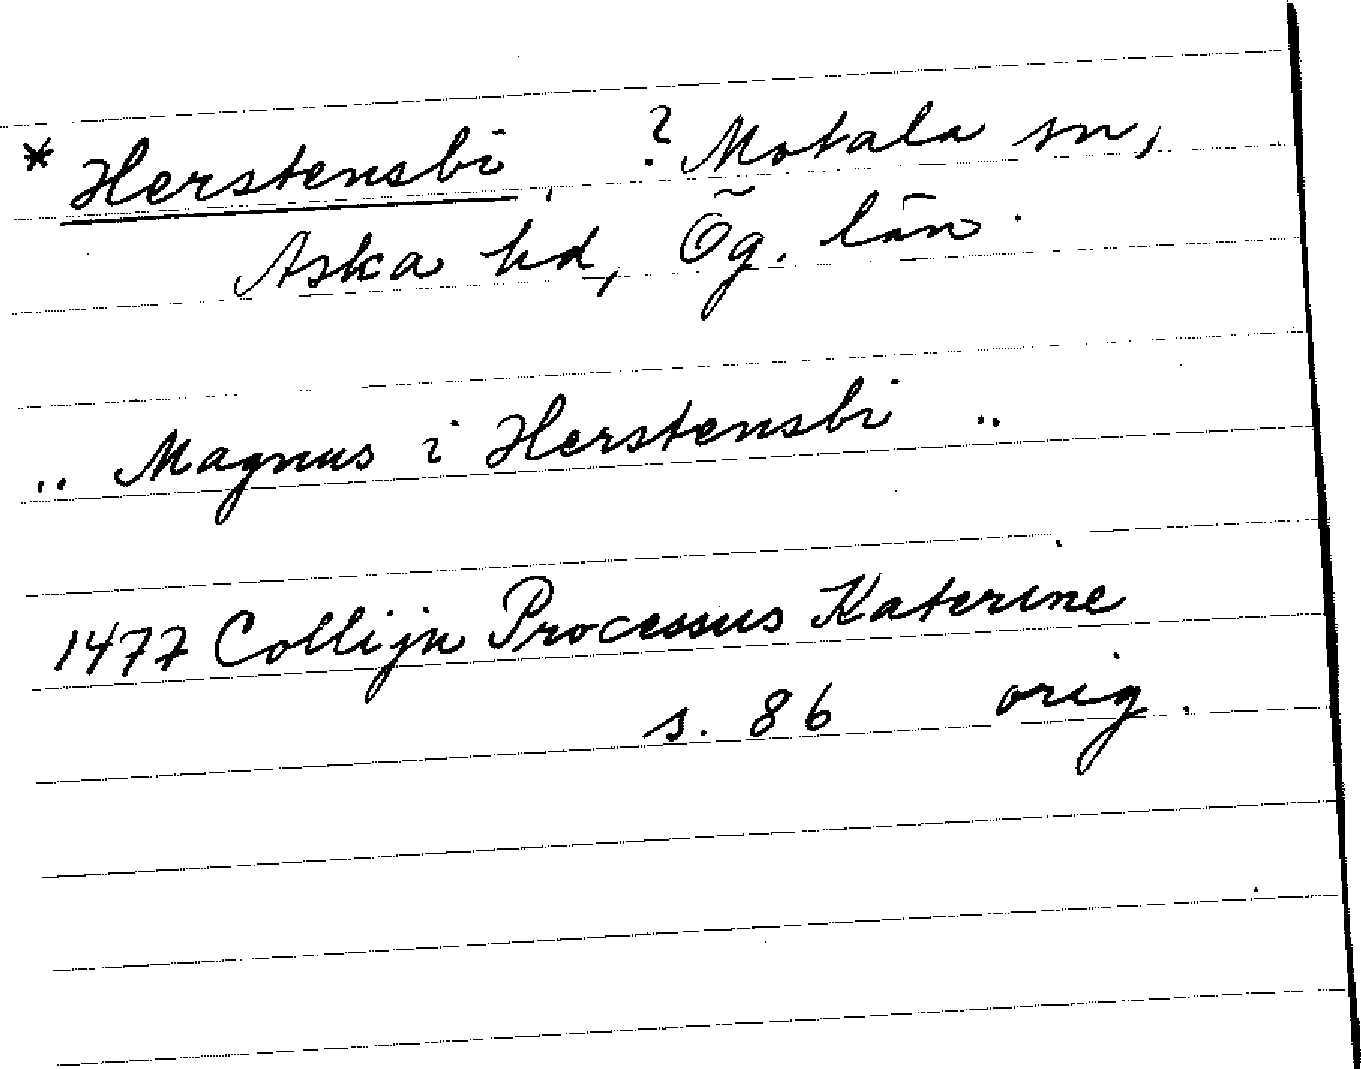 * Herstensbi, ? Motala sn,
Aska hd, Ög. län.
.. Magnus i Herstensbi ..
1477 Collijn Processus Katerine
s. 86 orig.